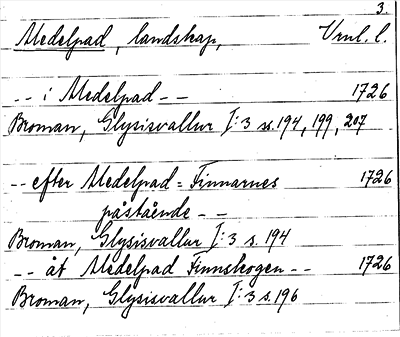 3.
Medelpad, landskap, Vnl. l.
-- i Medelpad -- 1726
Broman, Glysisvallur I:3 ss. 194, 199, 207
-- efter Medelpad = Finnarnes 1726
påstående --
Broman, Glysisvallur I:3 s. 194
-- åt Medelpad Finnskogen -- 1726
Broman, Glysisvallur I:3 s. 196